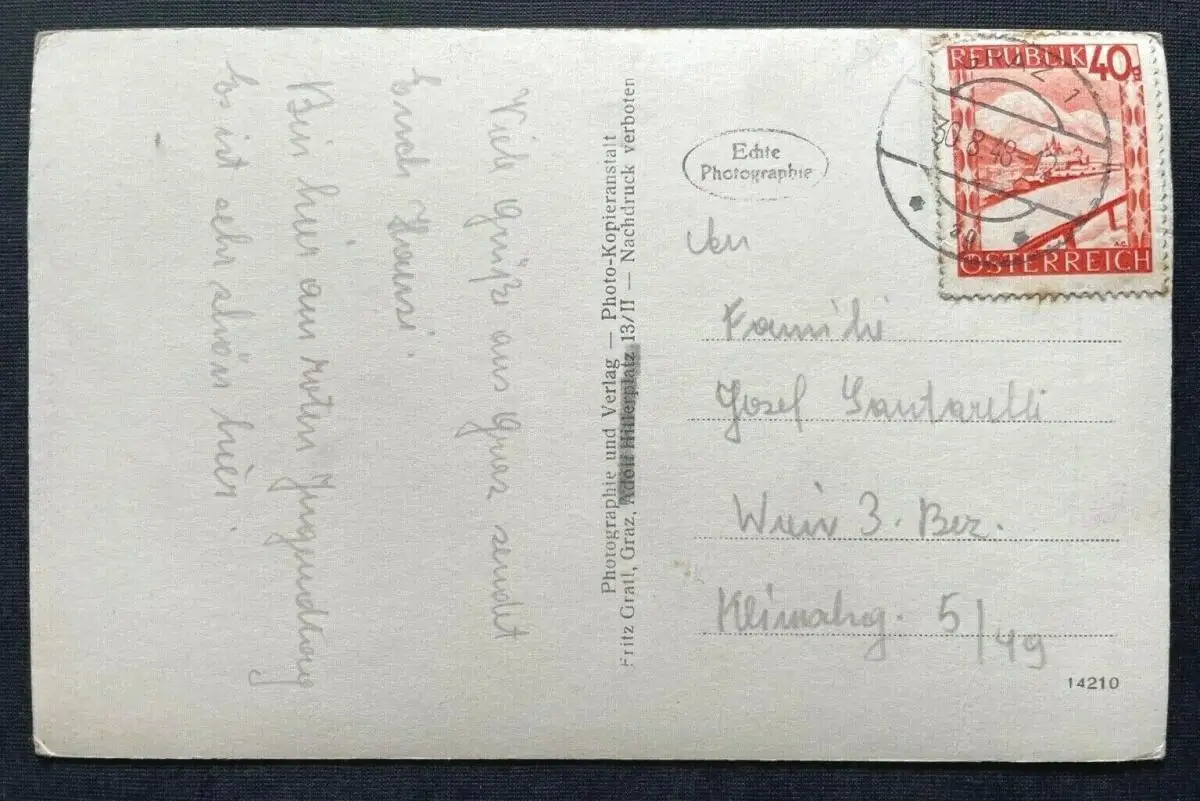 Viele Grüße aus Graz sendet
Euch Hansi.
Bin hier am roten Jugendtag
Es ist sehr schön hier.
Photographie und Verlag — Photo-Kopieranstalt
Fritz Gratl, Graz, Adolf Hitlerplatz 13/II — Nachdruck verboten
Echte
Photographie
REPUBLIK 40g
ÖSTERREICH
GRAZ 1
30.8.48
An
Familie
Josef Santarelli
Wien 3. Bez.
5/49
14210